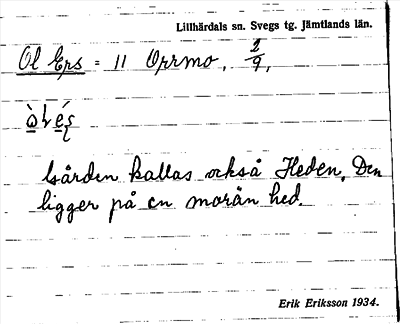 Lillhärdals sn. Svegs tg. Jämtlands län.
Ol Ers = 11 Orrmo, 2/9,
Gården kallas också Heden. Den
ligger på en morän hed.
Erik Eriksson 1934.